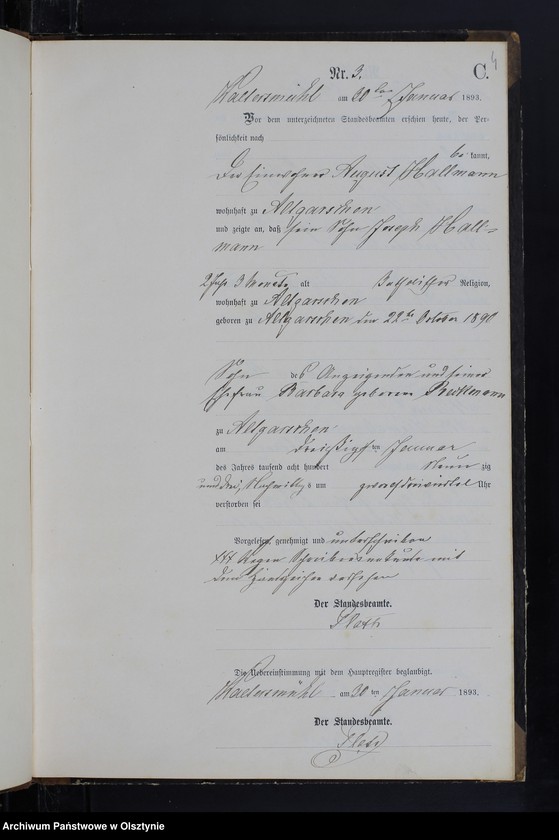 4
Nr. 3.
C.
Waltersmühl am 30ten Januar 1893.
Vor dem unterzeichneten Standesbeamten erschien heute, der Per-
sönlichkeit nach
be kannt,
Der Einwohner August Hallmann
wohnhaft zu Altgarschen
und zeigte an, daß sein Sohn Joseph Hall-
mann
2 Jahr 3 Monate alt katholischer Religion,
wohnhaft zu Altgarschen
geboren zu Altgarschen den 22ten October 1890
Sohn des Anzeigenden und seiner
Ehefrau Barbara geborene
zu Altgarschen
am dreißigsten Januar
des Jahres tausend acht hundert neun zig
und drei, Nachmittags um zwei Uhr
verstorben sei
Vorgelesen, genehmigt und unterschrieben
+++ wegen Schreibensunkunde mit
dem Handzeichen versehen
Der Standesbeamte.
Die Uebereinstimmung mit dem Hauptregister beglaubigt.
Waltersmühl am 30ten Januar 1893.
Der Standesbeamte.
Archiwum Państwowe w Olsztynie